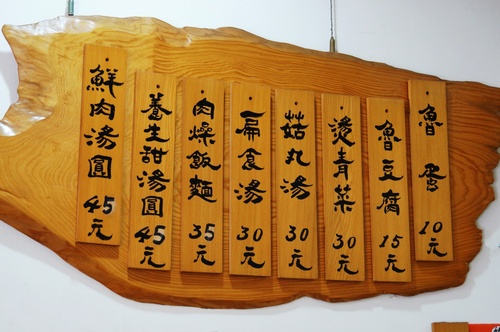 魯蛋 10元
魯豆腐 15元
燙青菜 30元
菇丸湯 30元
扁食湯 30元
肉燥飯麵 35元
養生甜湯圓 45元
鮮肉湯圓 45元